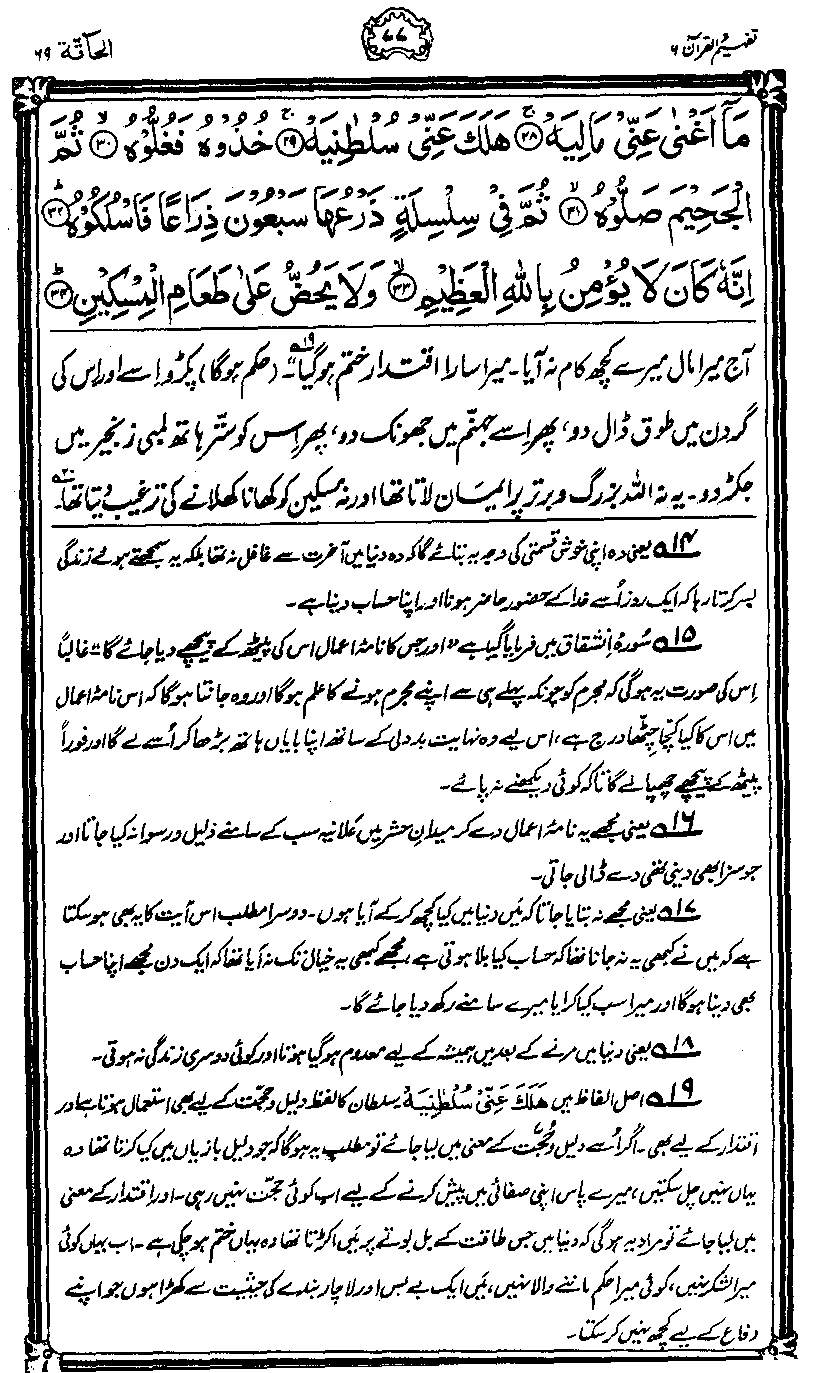 تفہیم القرآن ۶
۷۷
الحآقّۃ ۶۹
مَآ اَغْنٰی عَنِّیْ مَالِیَهْ ﴿۲۸﴾ هَلَكَ عَنِّیْ سُلْطٰنِیَهْ ﴿۲۹﴾ خُذُوْهُ فَغُلُّوْهُ ﴿۳۰﴾ ثُمَّ
الْجَحِیْمَ صَلُّوْهُ ﴿۳۱﴾ ثُمَّ فِیْ سِلْسِلَةٍ ذَرْعُهَا سَبْعُوْنَ ذِرَاعًا فَاسْلُكُوْهُ ﴿۳۲﴾
اِنَّهٗ كَانَ لَا یُؤْمِنُ بِاللّٰهِ الْعَظِیْمِ ﴿۳۳﴾ وَلَا یَحُضُّ عَلٰی طَعَامِ الْمِسْكِیْنِ ﴿۳۴﴾
آج میرا مال میرے کچھ کام نہ آیا۔ میرا سارا اقتدار ختم ہو گیا"۱۹۔ (حکم ہو گا) پکڑو اسے اور اس کی
گردن میں طوق ڈال دو، پھر اسے جہنّم میں جھونک دو، پھر اِس کو ستّر ہاتھ لمبی زنجیر میں
جکڑ دو۔ یہ نہ اللہ بزرگ و برتر پر ایمان لاتا تھا اور نہ مسکین کو کھانا کھلانے کی ترغیب دیتا تھا۲۰۔
۱۴؎ یعنی وہ اپنی خوش قسمتی کی وجہ یہ بتائے گا کہ وہ دنیا میں آخرت سے غافل نہ تھا بلکہ یہ سمجھتے ہوئے زندگی
بسر کرتا رہا کہ ایک روز اُسے خدا کے حضور حاضر ہونا اور اپنا حساب دینا ہے۔
۱۵؎ سُورۂ اِنشقاق میں فرمایا گیا ہے "اور جس کا نامۂ اعمال اس کی پیٹھ کے پیچھے دیا جائے گا" غالباً
اِس کی صورت یہ ہوگی کہ مجرم کو چونکہ پہلے ہی سے اپنے مجرم ہونے کا علم ہوگا اور وہ جانتا ہوگا کہ اس نامۂ اعمال
میں اس کا کیا کچّا چٹھا درج ہے، اس لیے وہ نہایت بددلی کے ساتھ اپنا بایاں ہاتھ بڑھا کر اُسے لے گا اور فوراً
پیٹھ کے پیچھے چھپا لے گا تاکہ کوئی دیکھنے نہ پائے۔
۱۶؎ یعنی مجھے یہ نامۂ اعمال دے کر میدانِ حشر میں عَلانیہ سب کے سامنے ذلیل و رسوا نہ کیا جاتا اور
جو سزا بھی دینی تھی دے ڈالی جاتی۔
۱۷؎ یعنی مجھے نہ بتایا جاتا کہ مَیں دنیا میں کیا کچھ کر کے آیا ہوں۔ دوسرا مطلب اس آیت کا یہ بھی ہو سکتا
ہے کہ میں نے کبھی یہ نہ جانا تھا کہ حساب کیا بلا ہوتی ہے، مجھے کبھی یہ خیال تک نہ آیا تھا کہ ایک دن مجھے اپنا حساب
بھی دینا ہوگا اور میرا سب کیا کرایا میرے سامنے رکھ دیا جائے گا۔
۱۸؎ یعنی دنیا میں مرنے کے بعد میں ہمیشہ کے لیے معدوم ہو گیا ہوتا اور کوئی دوسری زندگی نہ ہوتی۔
۱۹؎ اصل الفاظ ہیں هَلَكَ عَنِّیْ سُلْطٰنِیَهْ۔ سلطان کا لفظ دلیل و حجّت کے لیے بھی استعمال ہوتا ہے اور
اقتدار کے لیے بھی۔ اگر اُسے دلیل و حُجّت کے معنی میں لیا جائے تو مطلب یہ ہوگا کہ جو دلیل بازیاں میں کیا کرتا تھا وہ
یہاں نہیں چل سکتیں، میرے پاس اپنی صفائی میں پیش کرنے کے لیے اب کوئی حجّت نہیں رہی۔ اور اقتدار کے معنی
میں لیا جائے تو مراد یہ ہوگی کہ دنیا میں جس طاقت کے بل بوتے پر مَیں اکڑتا تھا وہ یہاں ختم ہو چکی ہے۔ اب یہاں کوئی
میرا لشکر نہیں، کوئی میرا حکم ماننے والا نہیں، مَیں ایک بے بس اور لاچار بندے کی حیثیت سے کھڑا ہوں جو اپنے
دفاع کے لیے کچھ نہیں کر سکتا۔